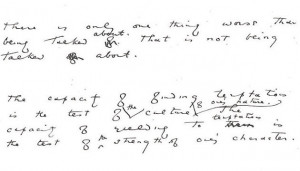 There is only one thing worse than
being talked about. That is not being
talked about.
The capacity of finding temptation
is the test of the culture of one's nature. The
capacity of yielding to temptation is
the test of the strength of one's character.